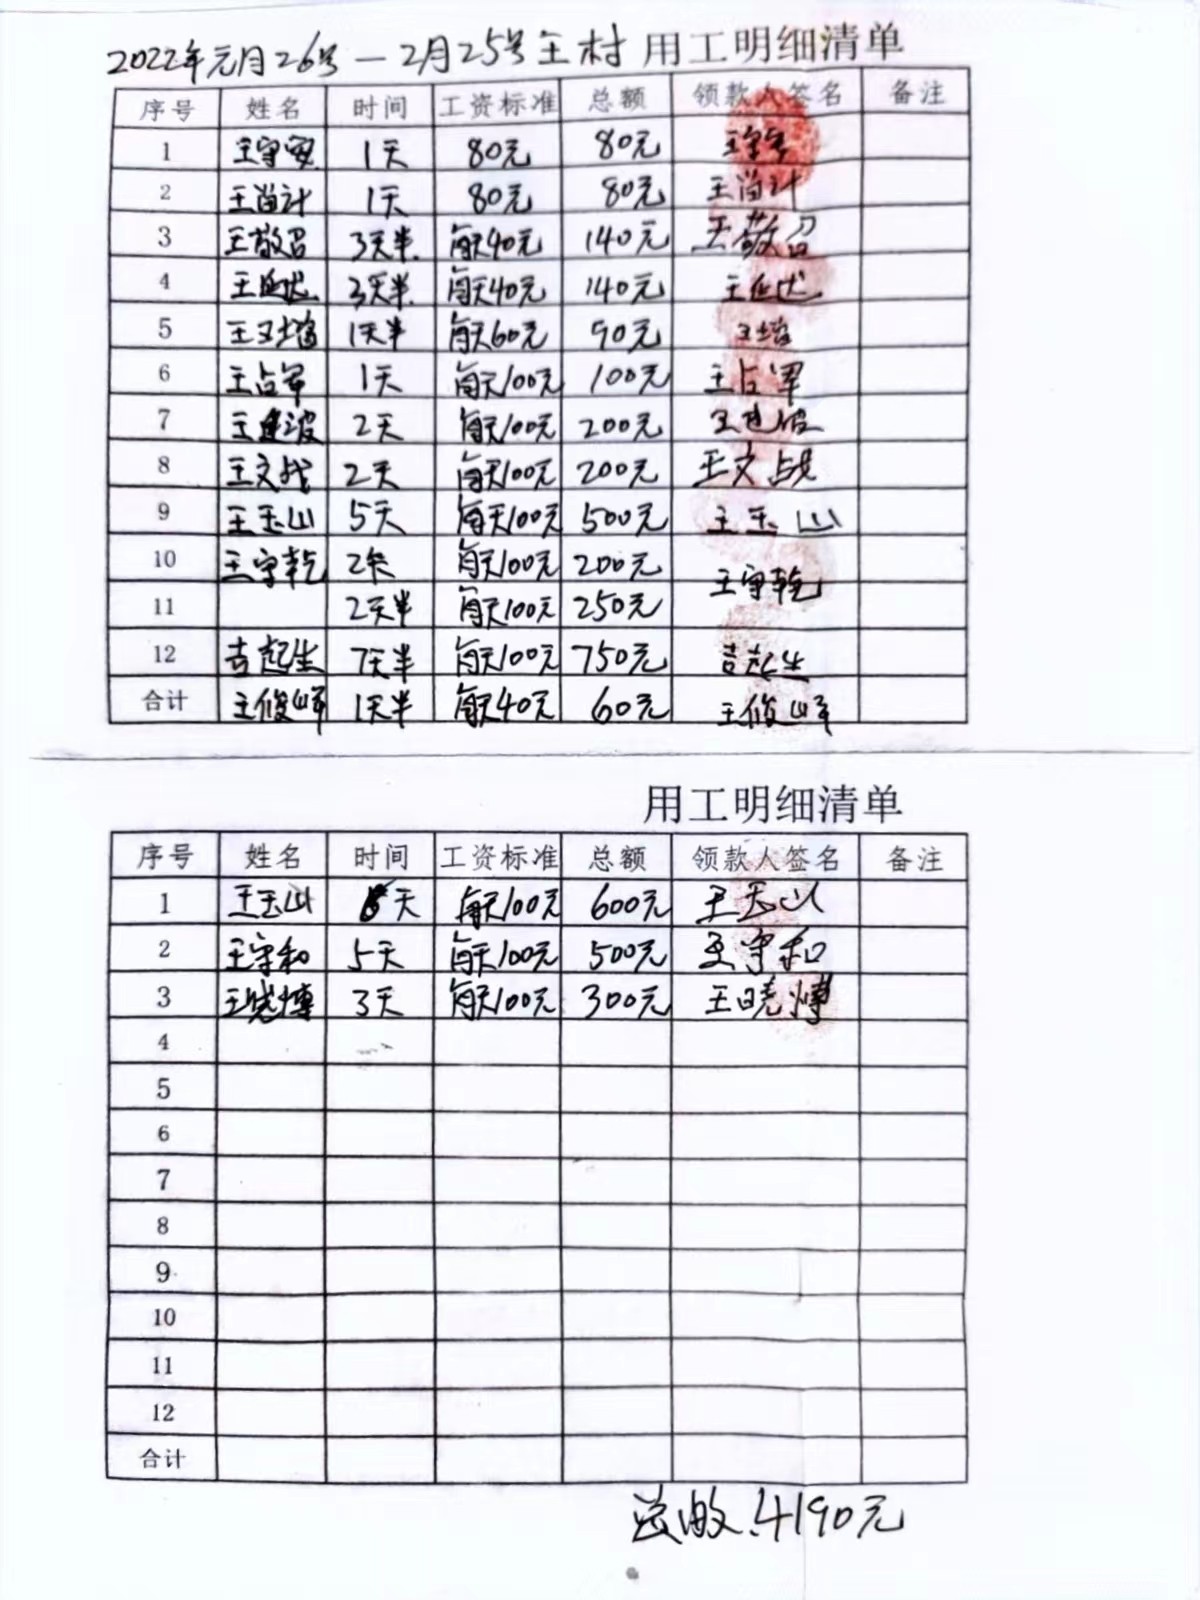 2022年元月26号—2月25号王村 用工明细清单
序号 姓名 时间 工资标准 总额 领款人签名 备注
1 王守安 1天 80元 80元 王守安
2 王尚计 1天 80元 80元 王尚计
3 王敬召 3天半 每天40元 140元 王敬召
4 3天半 每天40元 140元
5 1天半 每天60元 90元
6 王占军 1天 每天100元 100元 王占军
7 王建波 2天 每天100元 200元 王建波
8 王文战 2天 每天100元 200元 王文战
9 王玉山 5天 每天100元 500元 王玉山
10 王守乾 2天 每天100元 200元 王守乾
11 2天半 每天100元 250元
12 吉起生 7天半 每天100元 750元 吉起生
合计 王俊峰 1天半 每天40元 60元 王俊峰
用工明细清单
序号 姓名 时间 工资标准 总额 领款人签名 备注
1 王玉山 6天 每天100元 600元 王玉山
2 王守和 5天 每天100元 500元 王守和
3 王晓博 3天 每天100元 300元 王晓博
4
5
6
7
8
9
10
11
12
合计
总款:4190元